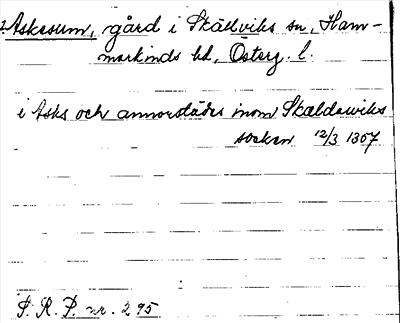 ? Askasum, gård i Skällviks sn, Ham-
markinds hd, Österg. l.
i Asks och annorstädes inom Skældawiks
socken 12/3 1357
S. R. P. nr. 295